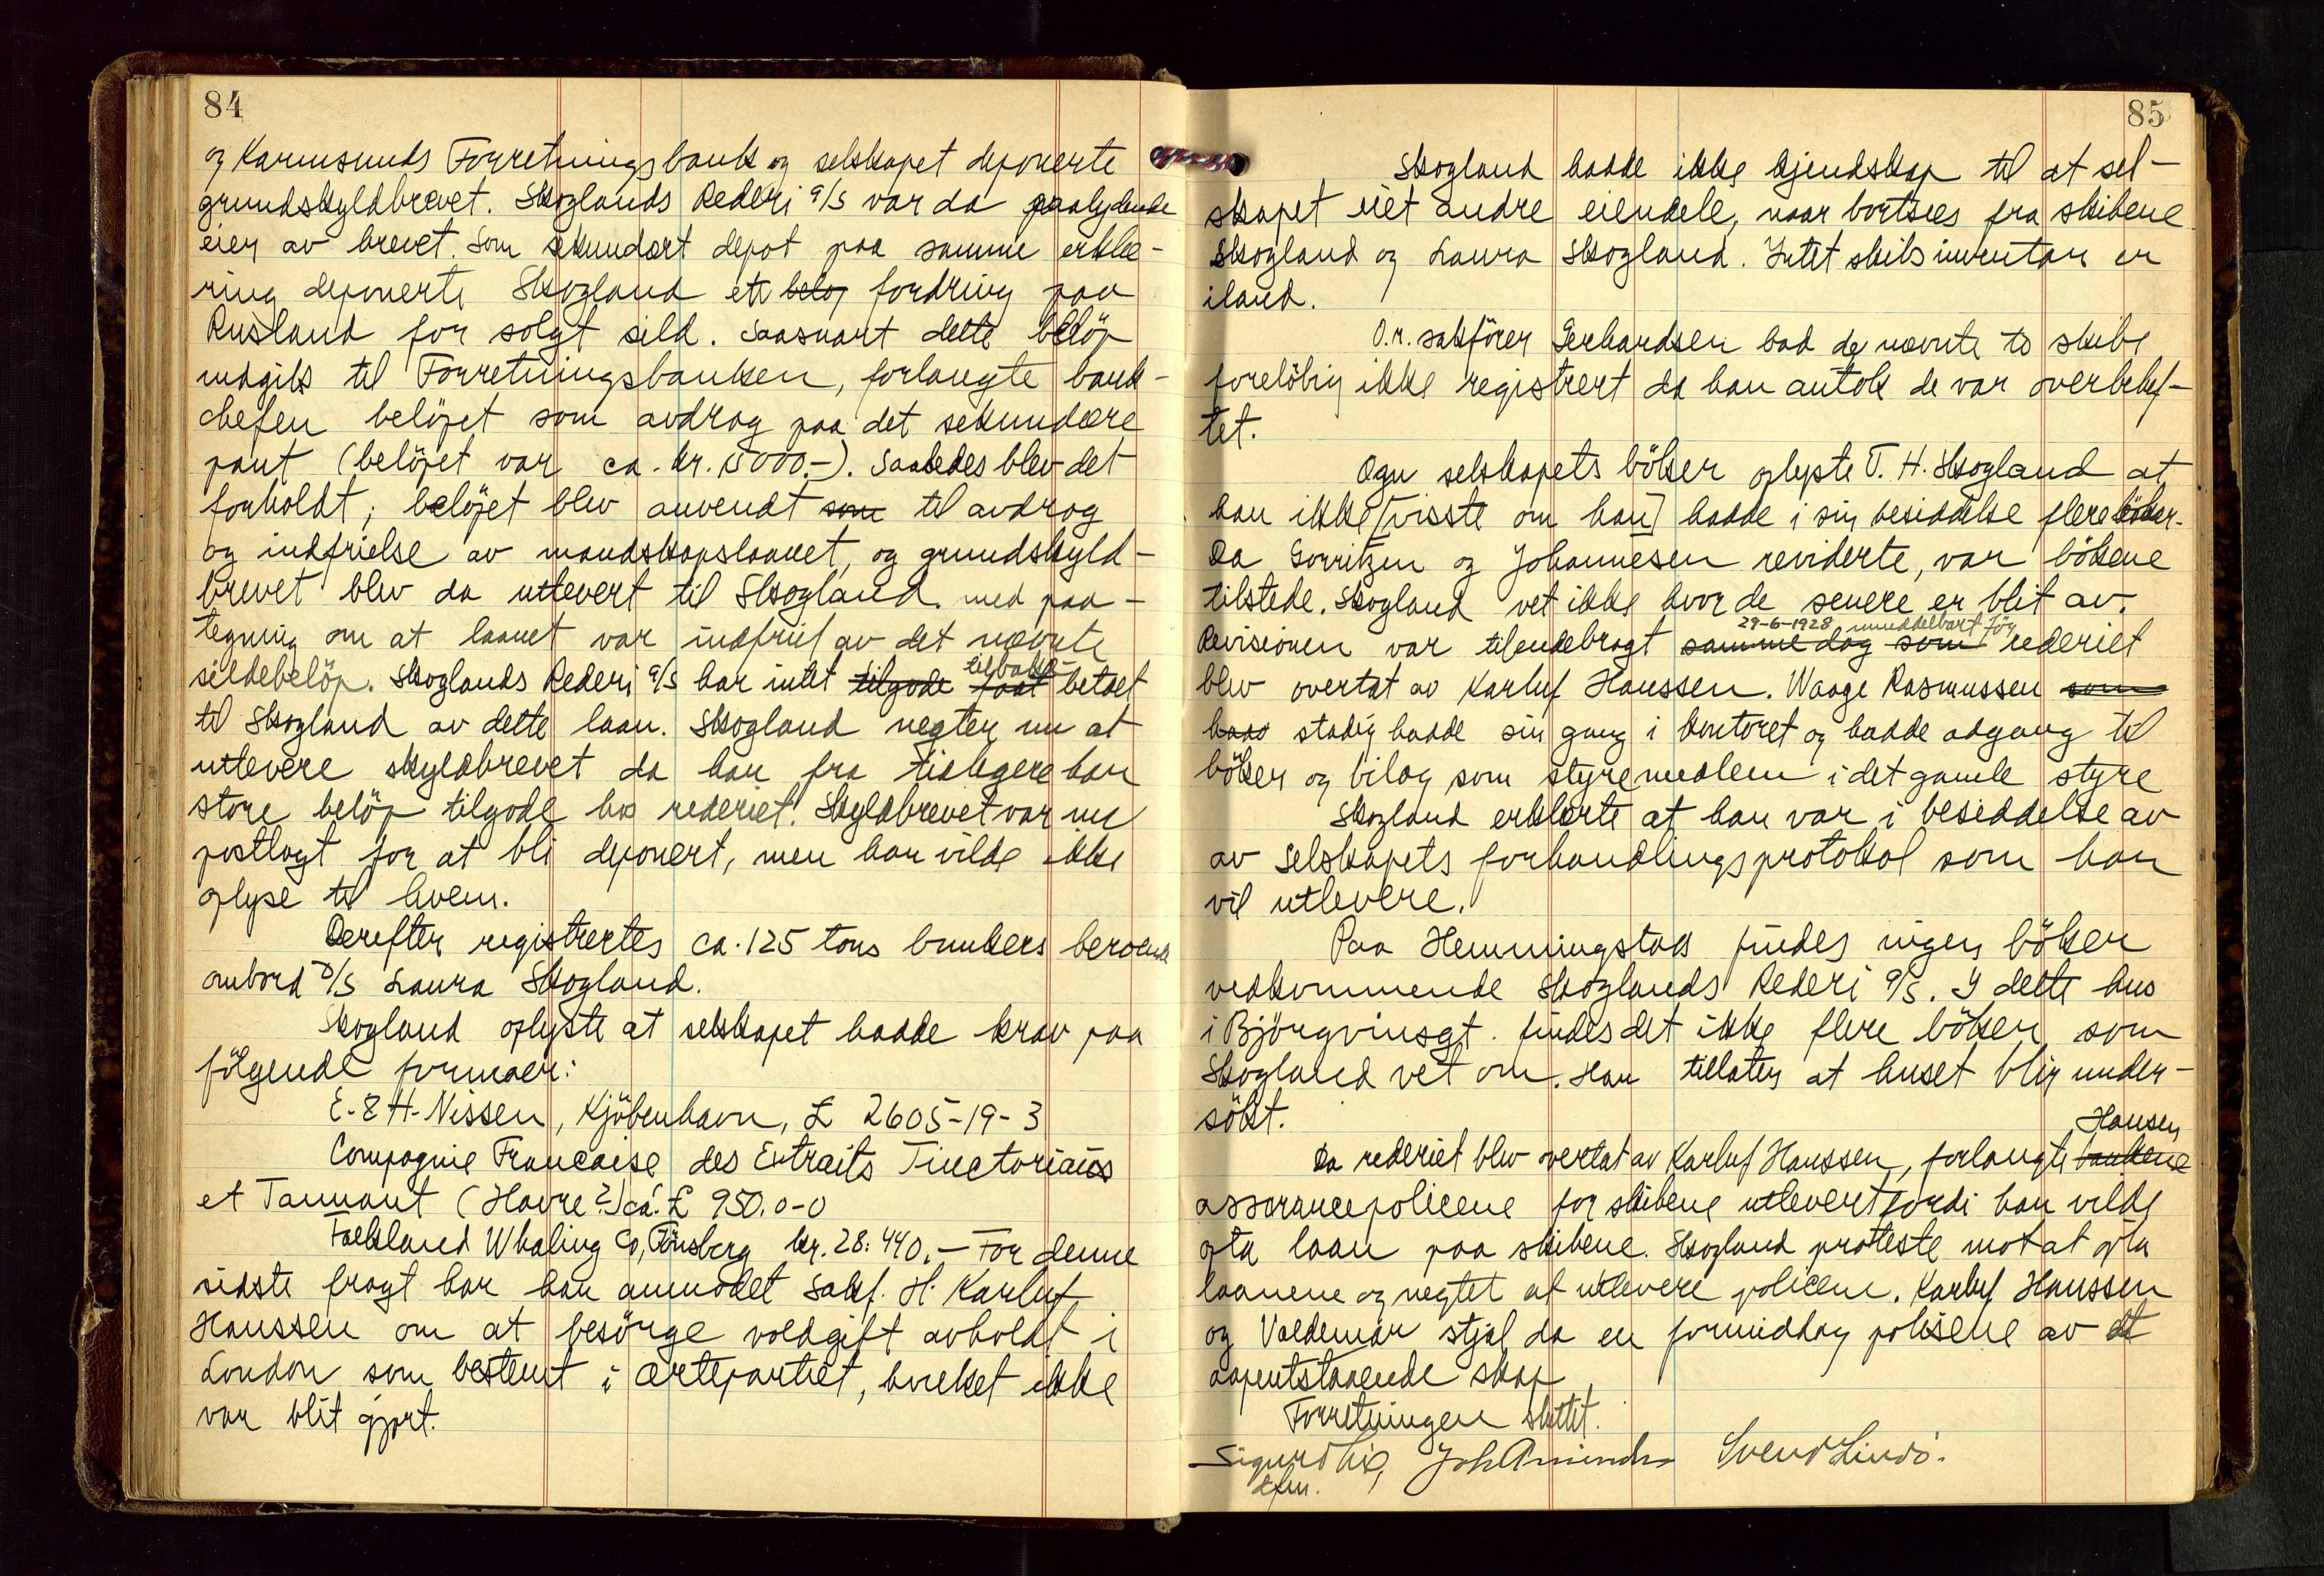 84
og Karmsunds Forretningsbank og selskapet deponerte
grundskyldbrevet. Skoglands Rederi a/s var da paalydende
eier av brevet. Som sekundært depot paa samme erklæ-
ring deponerte Skogland ett beløp fordring paa
Rusland for solgt sild. Saasnart dette beløp
indgik til Forretningsbanken, forlangte bank-
chefen beløpet som avdrag paa det sekundære
pant (beløpet var ca. kr. 15000.-). Saaledes blev det
forholdt; beløpet blev anvendt som til avdrag
og indfrielse av mandskapslaanet, og grundskyld-
brevet blev da utlevert til Skogland med paa-
tegning om at laanet var indfriet av det nævnte
sildebeløp. Skoglands Rederi a/s har intet tilgode faat tilbake- betalt
til Skogland av dette laan. Skogland negter nu at
utlevere skyldbrevet da han fra tidligere har
store beløp tilgode hos rederiet. Skyldbrevet var nu
postlagt for at bli deponert, men han vilde ikke
oplyse til hvem.
Derefter registrertes ca. 125 tons bunkers beroende
ombord D/S Laura Skogland.
Skogland oplyste at selskapet hadde krav paa
følgende firmaer:
E. & H. Nissen, Kjøbenhavn, £ 2605-19-3
Compagnie Francaise des Extraits Tinctoriaus
et Tannant (Havre?) ca. £ 950.0-0
Falkland Whaling Co, Tønsberg kr. 28:440.- For denne
sidste fragt har han anmodet sakf. H. Karluf
Hanssen om at besørge voldgift avholdt i
London som bestemt i certepartiet, hvilket ikke
var blit gjort.
85
Skogland hadde ikke kjendskap til at sel-
skapet eiet andre eiendele, naar bortsees fra skibene
Skogland og Laura Skogland. Intet skibsinventar er
iland.
O.r. sakfører Gerhardsen bad de nævnte to skibe
foreløbig ikke registrert da han antok de var overbehef-
tet.
Ogn selskapets bøker oplyste T. H. Skogland at
han ikke [visste om han] hadde i sin besiddelse flere bøker.
Da Gorritzen og Johannesen reviderte, var bøkene
tilstede. Skogland vet ikke hvor de senere er blit av.
29-6-1928 umiddelbart før
Revisionen var tilendebragt samme dag som rederiet
blev overtat av Karluf Hanssen. Waage Rasmussen som
hadd stadig hadde sin gang i kontoret og hadde adgang til
bøker og bilag som styremedlem i det gamle styre
Skogland erklærte at han var i besiddelse av
av selskapets forhandlingsprotokol som han
vil utlevere.
Paa Hemmingstad findes ingen bøker
vedkommende Skoglands Rederi a/s. I dette hus
i Bjørgvinsgt. findes det ikke flere bøker som
Skogland vet om. Han tillater at huset blir under-
søkt.
Hansen
Da rederiet blev overtat av Karluf Hanssen, forlangte bankene
assurancepolicene for skibene utlevert fordi han vilde
opta laan paa skibene. Skogland proteste mot at opta
laanene og negtet at utlevere policene. Karluf Hanssen
og Valdemar stjal da en formiddag polisene av et
aapentstaaende skap
Forretningen sluttet.
Sigurd Lie, Joh Amundsen Svend Lindø.
dfm.